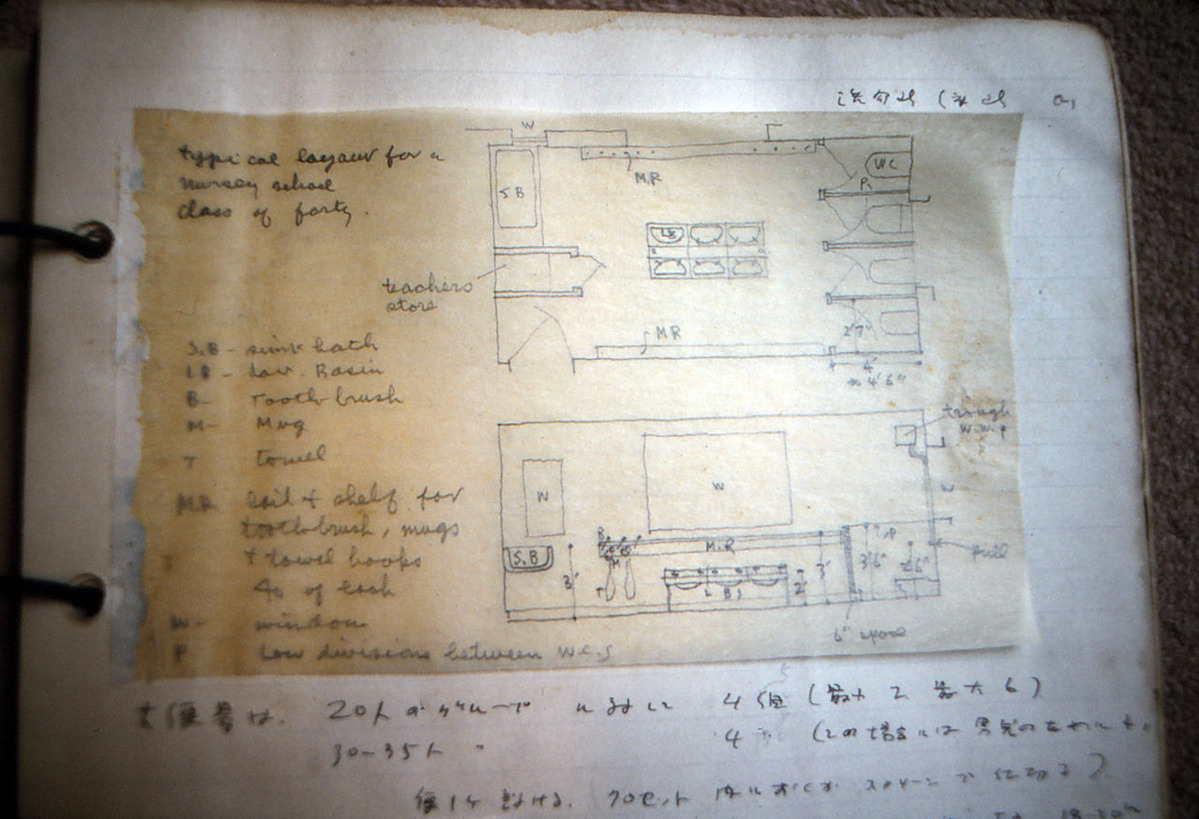 typical layout for a
nursery school
class of forty.
W
S.B
M.R
WC
P.
LB
teachers
store
MR
2'7"
4'
to 4'6"
S.B - sink bath
LB - Lav. Basin
B - Tooth brush
M - Mug
T towel
MR Rail & shelf for
toothbrush, mugs
& towel hooks
40 of each
W - window
P Low divisions between W.C.s
trough
W
W
W
B
M
T
S.B
M.R
LB
3'
2'
3'
3'6"
P
pull
6" space
大便器は、20人のグループ において 4個 (最小2 最大6)
30-35人 〃 4 〃 (この場合には男児の
便1ケ設ける。クロセット スクリーンで仕切る)